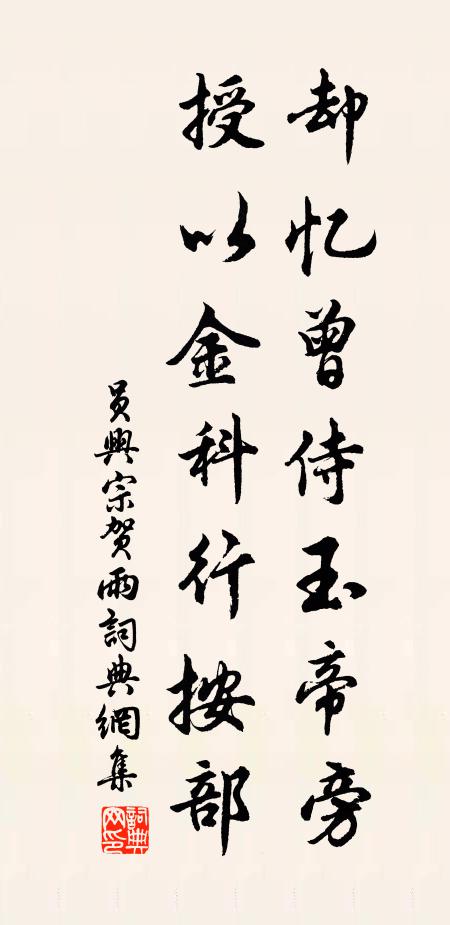 却忆曾侍玉帝旁
授以金科行按部
员興宗贺雨詞典網集
詞典网印